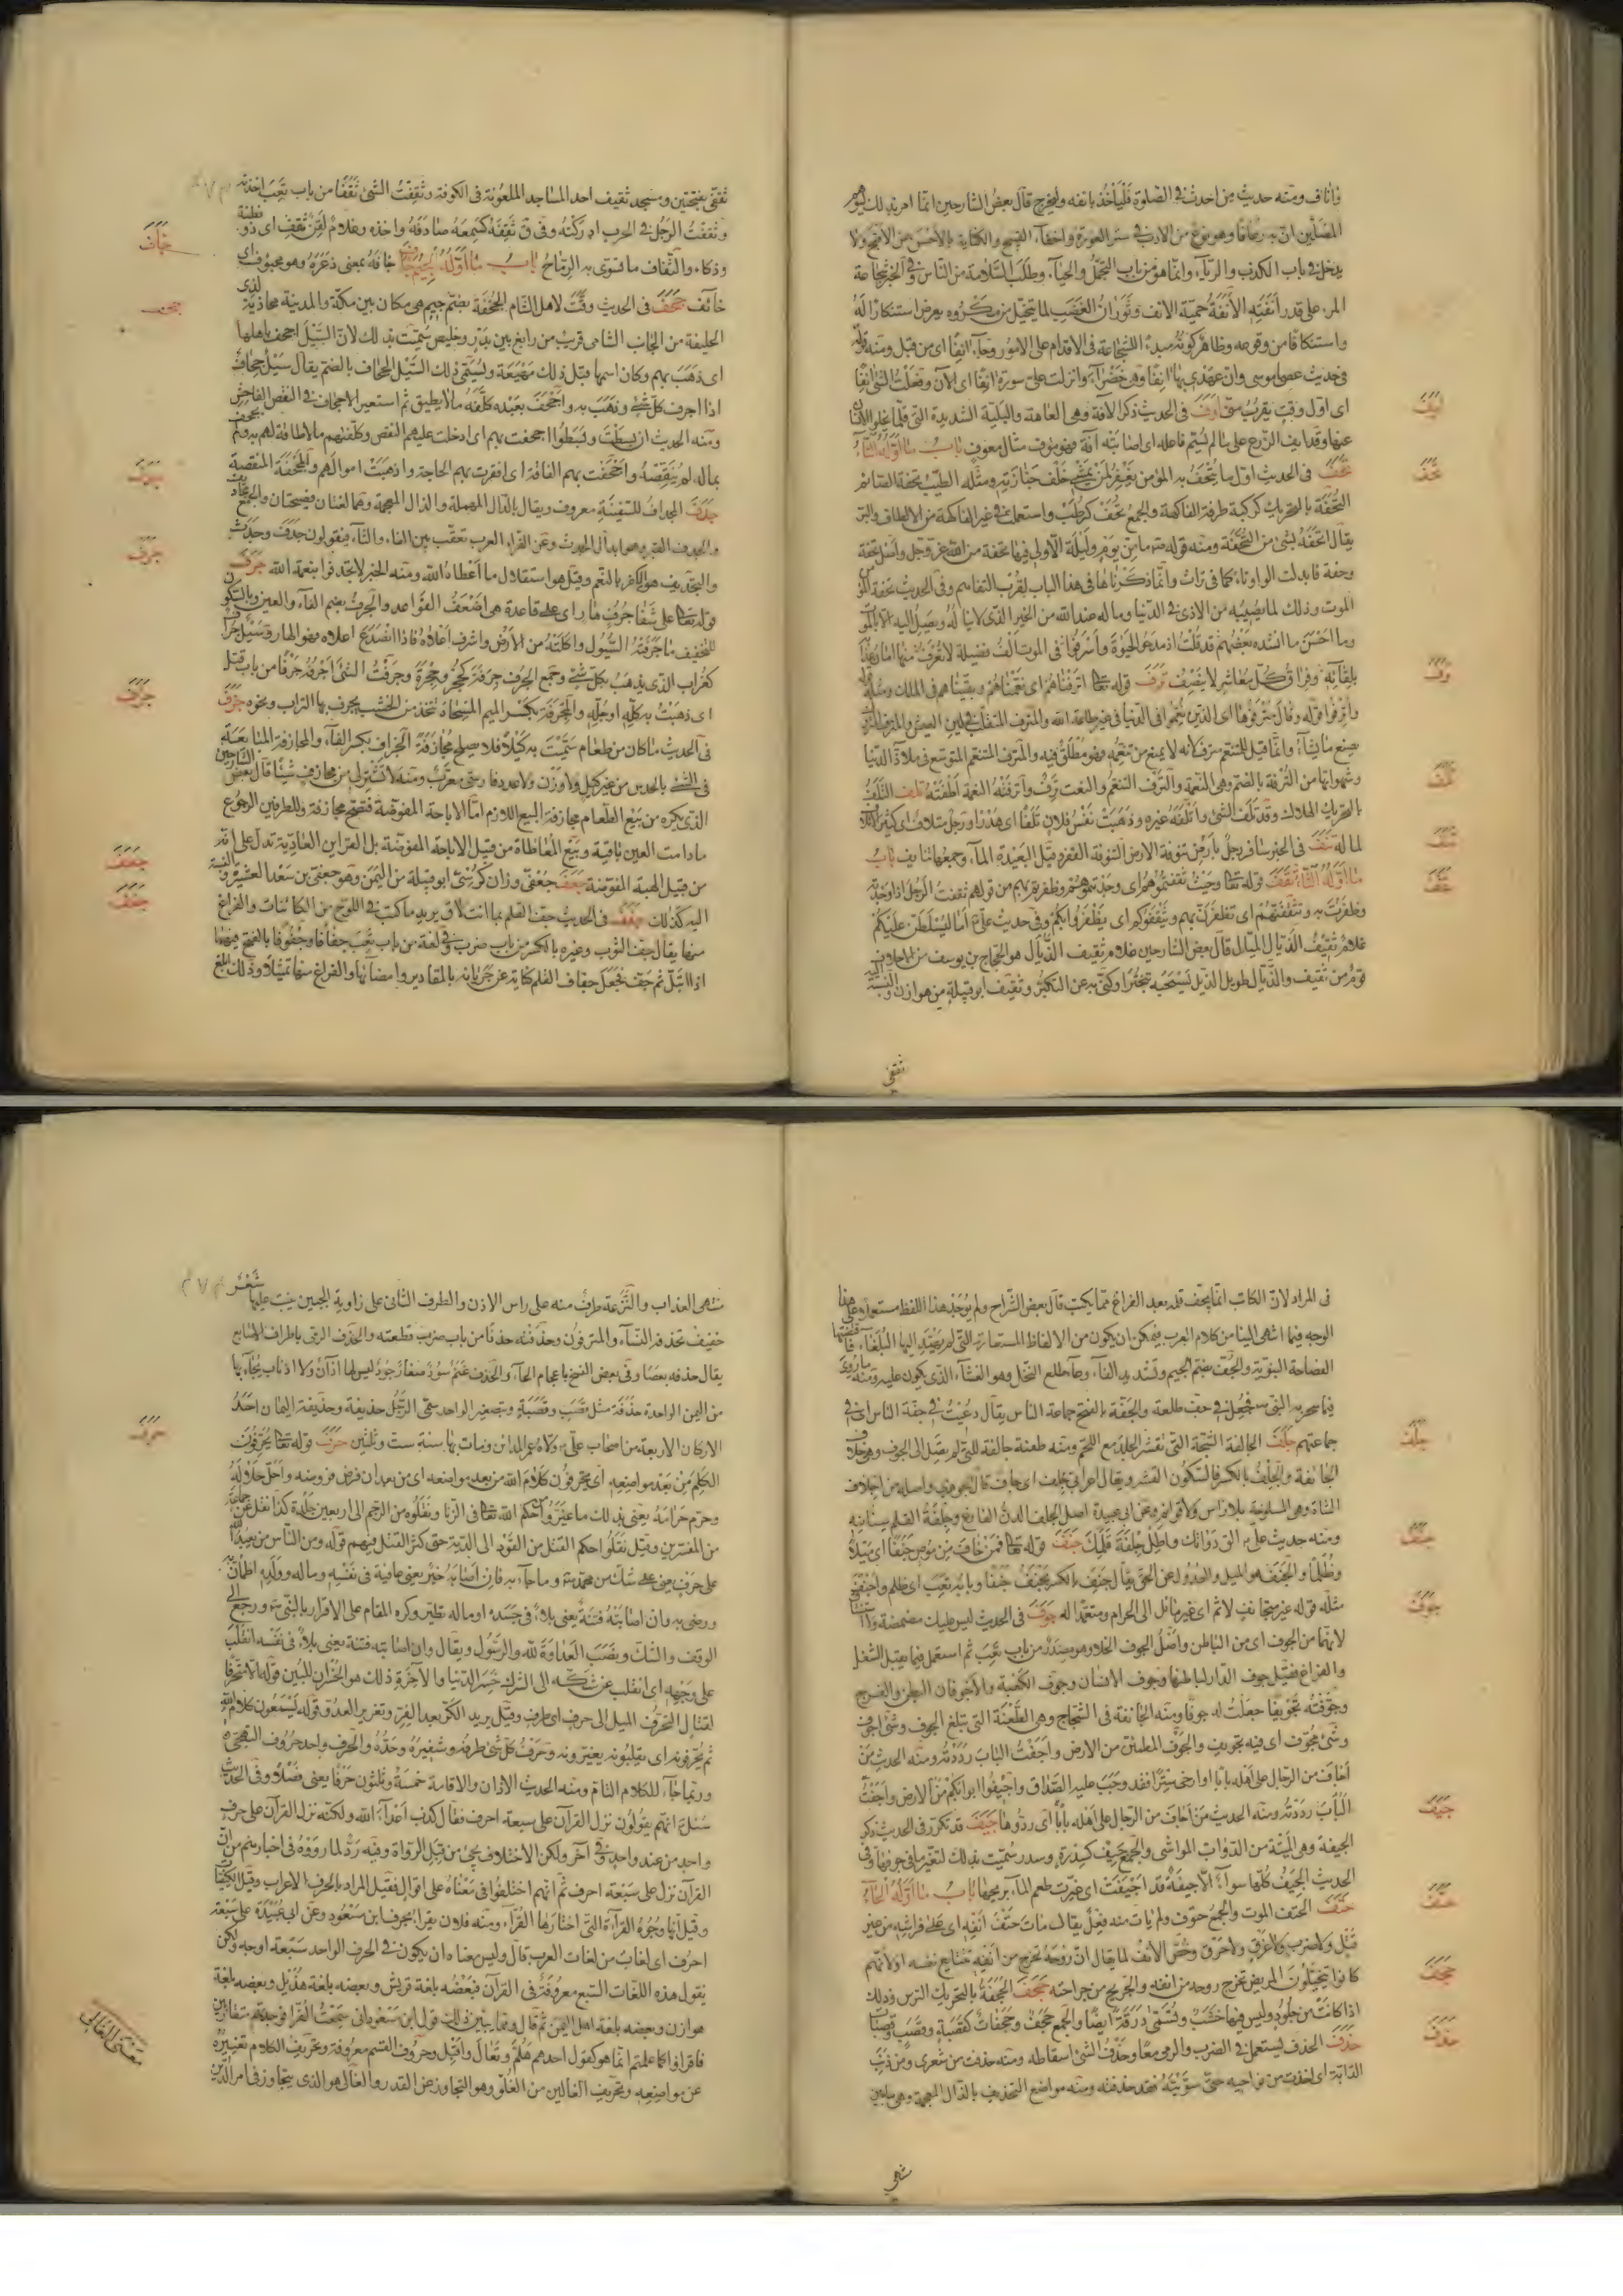 وآناف ومنه حديث من احدث في الصلوة فليأخذ بانفه وليخرج قال بعض الشارحين انما امر بذلك ليوهم
المصلين ان به رعافا وهو نوع من الادب في ستر العورة واخفاء القبيح والكناية بالاحسن عن الاقبح ولا
يدخل في باب الكذب والرياء وانما هو من باب التجمل والحياء وطلب السلامة من الناس وفي الخبر شجاعة
المرء على قدر أنفته الأنفة حمية الانف وثوران الغضب لما يتخيل من مكروه يعرض استنكارا له
واستنكافا من وقوعه وظاهر كونه مبدء للشجاعة في الاقدام على الامور وجاء آنفا اى من قبل ومنه قوله
في حديث عصا موسى وان عهدي بها آنفا وهي خضراء وانزلت على سورة آنفا اى الآن وفعلت الشئ آنفا
اى اول وقت يقرب منى اوف في الحديث ذكر الآفة وهي العاهة والبلية الشديدة التى قلما يخلو الانسان
عنها وقد ايف الزرع على ما لم يسم فاعله اى اصابته آفة فهو مؤوف مثال معوف باب ما اوله التاء
تحف في الحديث اول ما يتحف به المؤمن يغفر لمن يمشى خلف جنازته ومثله الطيب تحفة الصائم
التحفة بالتحريك كرطبة طرفة الفاكهة والجمع تحف كرطب واستعملت في غير الفاكهة من الالطاف والبر
يقال اتحفه بشئ من التحفة ومنه قوله ما من يوم وليلة الا ولى فيها تحفة من الله عز وجل واصل تحفة
وحفة فابدلت الواو تاء كما في تراث وانما ذكرناها في هذا الباب لقرب التفاهم وفي الحديث تحفة المؤمن
الموت وذلك لما يصيبه من الاذى في الدنيا وما له عند الله من الخير الذى لا يناله ويصل اليه الا بالموت
وما احسن ما انشده بعضهم قد قلت اذ مدحوا الحيوة وأسرفوا في الموت ألف فضيلة لا تعرف منها امان عذابه
بلقائه وفراق كل معاشر لا ينصف ترف قوله تعالى اترفناهم اى نعمناهم وبقيناهم في الملك ومثله
صنع ما يشاء وانما قيل للمتنعم مترف لانه لا يمنع من تنعمه فهو مطلق فيه والمترف المتنعم المتوسع في ملاذ الدنيا
وشهواتها من الترفة بالضم وهي النعمة والترف التنعم والنعت ترف وأترفته النعمة أطغته تلف التلف
بالتحريك الهلاك وقد تلف الشئ واتلفه غيره وذهبت نفس فلان تلفا اى هدرا ورجل متلاف اى كثير الاتلاف
لماله تنف في الخبر سافر رجل بأرض تنوفة الارض التنوفة القفر وقيل البعيدة الماء وجمعها تنايف باب
ما اوله الثاء ثقف قوله تعالى وحيث ثقفتموهم اى وجدتموهم وظفرتم بهم من قولهم ثقفت الرجل اذا وجدته
وظفرت به وتثقفنهم اى تظفرن بهم ويثقفوكم اى يظفروا بكم وفي حديث على اما ليسلطن عليكم
غلام ثقيف الذيال الميال قال بعض الشارحين غلام ثقيف الذيال هو الحجاج بن يوسف من الاحلاف
قوم من ثقيف والذيال طويل الذيل يسحبه تبخترا وكنى به عن التكبر وثقيف ابو قبيلة من هوازن والنسبة اليه
ثقفى
ليف
تحف
ترف
تلف
تنف
ثقف
ثقفى بفتحتين ومسجد ثقيف احد المساجد الملعونة في الكوفة وثقفت الشئ ثقفا من باب تعب اخذته
وثقفت الرجل في الحرب ادركته وفي ق ثقفه كسمعه صادفه واخذه وغلام لقن ثقف اى ذو فطنة
وذكاء والثقاف ما تسوى به الرماح باب ما اوله الجيم جأف جأفه بمعنى ذعره وهو مجؤوف اى
خائف جحف في الحديث وقت لاهل الشام الجحفة بضم جيم هي مكان بين مكة والمدينة محاذية لذى
الحليفة من الجانب الشامى قريب من رابغ بين بدر وخليص سميت بذلك لان السيل اجحف باهلها
اى ذهب بهم وكان اسمها قبل ذلك مهيعة ويسمى ذلك السيل الجحاف بالضم يقال سيل جحاف
اذا اجرف كل شئ وذهب به واجحف بعبده كلفه ما لا يطيق ثم استعير الاجحاف في النقص الفاحش
ومنه الحديث ان بسطت وبسطوا اجحفت بهم اى ادخلت عليهم النقص وكلفتهم ما لا طاقة لهم به
بماله لم ينقصه واجحفت بهم الفاقة اى افقرت بهم الحاجة واذهبت اموالهم والمجحفة المنقصة
جدف المجداف للسفينة معروف ويقال بالدال المهملة والذال المعجمة وهما لغتان فصيحتان
والجدف القبر وهو ابدال الجدث وعن الفراء العرب تعقب بين الفاء والثاء فيقولون جدف وجدث
والتجديف هو الكفر بالنعم وقيل هو استقلال ما أعطاه الله ومنه الخبر لا تجدفوا بنعمة الله جرف
قوله تعالى على شفا جرف هار اى على قاعدة هى أضعف القواعد والجرف بضم الفاء والعين وبالسكون
للتخفيف ما جرفته السيول واكلته من الارض واشرف اعلاه فاذا انصدع اعلاه فهو الهار وسيل جراف
كغراب الذى يذهب بكل شئ وجمع الجرف جرفة كحجر وحجرة وجرفت الشئ اجرفه جرفا من باب قتل
اى ذهبت به كله او جله والمجرفة بكسر الميم المسحاة تتخذ من الخشب يجرف بها التراب ونحوه جزف
في الحديث ما كان من طعام سميت به كيلا فلا يصلح مجازفة الجزاف بكسر الفاء والمجازفة المبايعة
في الشئ بالحدس من غير كيل ولا وزن ولا عدد فارسى معرب ومنه لا تشترلى من مجازف شيئا قال بعض الشارحين
الذى يكره من بيع الطعام مجازفة البيع اللازم اما الاباحة المفوضة فتصح مجازفة وللطرفين الرجوع
مادامت العين باقية وبيع المعاطاة من قبيل الاباحة المفوضة بل القراين العادية تدل على انه
من قبيل الهبة المفوضة جعف جعفى وزان كرسى ابو قبيلة من اليمن وهو جعفى بن سعد العشيرة والنسبة
اليه كذلك جفف في الحديث جف القلم بما انت لاق يريد ما كتب في اللوح من الكائنات والفراغ
منها يقال جف الثوب وغيره بالكسر من باب ضرب وفي لغة من باب تعب جفافا وجفوفا بالفتح فيهما
اذا ابتل ثم جف فجعل جفاف القلم كناية عن جريانه بالمقادير وامضائها والفراغ منها تمثيلا وذلك ابلغ
جأف
جحف
جدف
جرف
جزف
جعف
جفف
فى المراد لان الكاتب انما يجف قلمه بعد الفراغ مما يكتب قال بعض الشراح ولم يوجد هذا اللفظ مستعملا على هذا
الوجه فيما انتهى الينا من كلام العرب فيمكن ان يكون من الالفاظ المستعارة التى لم يهتد اليها البلغاء فاقتضتها
الفصاحة النبوية والجف بضم الجيم وتشديد الفاء وعاء طلع النخل وهو الغشاء الذى يكون عليه ومنه ما روى
فيما سحر به النبى فجعل في جف طلعة والجفة بالفتح جماعة الناس يقال دعيت في جفة الناس اى في
جماعتهم جلف الجالفة الشجة التى تقشر الجلد مع اللحم ومنه طعنة جالفة للتى لم تصل الى الجوف وهو خلاف
الجائفة والجلف بالكسر فالسكون القشر ويقال اعرابى جلف اى جاف قال الجوهرى واصله من اجلاف
الشاة وهى المسلوخة بلا راس ولا قوائم وعن ابى عبيدة اصل الجلف الدن الفارغ وجلفة القلم سنانه
ومنه حديث على الق دواتك واطل جلفة قلمك جنف قوله تعالى فمن خاف من موص جنفا اى ميلا
وظلما والجنف هو الميل والعدول عن الحق يقال جنف بالكسر يجنف جنفا وبابه تعب اى ظلم واجنف
مثله قوله غير متجانف لاثم اى غير مائل الى الحرام ومتعمدا له جوف في الحديث ليس عليك مضمضة ولا استنشاق
لانهما من الجوف اى من الباطن واصل الجوف الخلاء وهو مصدر من باب تعب ثم استعمل فيما يقبل الشغل
والفراغ فقيل جوف الدار لباطنها وجوف الانسان وجوف الكعبة والاجوفان البطن والفرج
وجوفته تجويفا جعلت له جوفا ومنه الجائفة في الشجاج وهى الطعنة التى تبلغ الجوف وشئ اجوف
وشئ مجوف اى فيه تجويف والجوف المطمئن من الارض واجفت الباب رددته ومنه الحديث من
أجاف من الرجال على اهله بابا او ارخى سترا فقد وجب عليه الصداق واجيفوا ابوابكم من الارض واجفت
الباب رددته ومنه الحديث من أجاف من الرجال على اهله بابا اى ردوها جيف قد تكرر في الحديث ذكر
الجيفة وهى الميتة من الدواب المواشى والجمع جيف كسدرة وسدر سميت بذلك لتغير ما في جوفها وفي
الحديث الجيف كلها سواء الا جيفة قد اجيفت اى غيرت طعم الماء بريحها باب ما اوله الحاء
حتف الحتف الموت والجمع حتوف ولم يات منه فعل يقال مات حتف انفه اى على فراشه من غير
قتل ولا ضرب ولا غرق ولا حرق وخص الأنف لما يقال ان روحه تخرج من أنفه بتتابع نفسه او لانهم
كانوا يتخيلون المريض تخرج روحه من انفه والجريح من جراحته حجف الحجفة بالتحريك الترس وذلك
اذا كانت من جلود وليس فيها خشب وتسمى درقة ايضا والجمع حجف وحجفات كقصبة وقصب وقصبات
حذف الحذف يستعمل في الضرب والرمى معا وحذف الشئ اسقاطه ومنه حذفت من شعرى ومن ذنب
الدابة اى اخذت من نواحيه حتى سويته فقد حذفته ومنه مواضع التحذيف بالذال المعجمة وهى ما بين
منتهى
جلف
جنف
جوف
جيف
حتف
حجف
حذف
منتهى العذاب والنزعة طرف منه على راس الاذن والطرف الثانى على زاوية الجبين ينبت عليها شعر
خفيف تحذفه النساء والمترفون وحذفته حذفا من باب ضرب قطعته والحذف الرمى باطراف الاصابع
يقال حذفه بعصا وفى بعض النسخ باعجام الخاء والحذف غنم سود صغار جرد ليس لها آذان ولا اذناب يجاء بها
من اليمن الواحدة حذفة مثل قصب وقصبة وبتصغير الواحد سمى الرجل حذيفة وحذيفة اليمان احد
الاركان الاربعة من اصحاب على ولاه عمر المداين ومات بها سنة ست وثلثين حرف قوله تعالى يحرفون
الكلم من بعد مواضعه اى يحرفون كلام الله من بعد مواضعه اى من بعد ان فرض فروضه واحل حلاله
وحرم حرامه يعنى بذلك ما غيروا من حكم الله تعالى في الزنا ونقلوه من الرجم الى اربعين جلدة كذا نقل عن جماعة
من المفسرين وقيل نقلوا حكم القتل من القود الى الدية حتى كثر القتل فيهم قوله ومن الناس من يعبد الله
على حرف يعنى على شك من محمد وما جاء به فان اصابه خير يعنى عافية في نفسه وماله وولده اطمأن به
ورضى به وان اصابته فتنة يعنى بلاء في جسده او ماله تطير وكره المقام على الاقرار بالنبى ورجع الى
الوقف والشك ونصب العداوة لله والرسول ويقال وان اصابته فتنة يعنى بلاء في نفسه انقلب
على وجهه اى انقلب عن شكه الى الشرك خسر الدنيا والآخرة ذلك هو الخسران المبين قوله الا متحرفا
لقتال التحرف الميل الى حرف اى طرف وقيل يريد الكر بعد الفر وتغرير العدو قوله يسمعون كلام الله
ثم يحرفونه اى يقلبونه يغيرونه وحرف كل شئ طرفه وشفيره وحده والحرف واحد حروف التهجى
وربما جاء للكلام التام ومنه الحديث الاذان والاقامة خمسة وثلثون حرفا يعنى فصلا وفى الحديث
سئل انهم يقولون نزل القرآن على سبعة احرف فقال كذب اعداء الله ولكنه نزل القرآن على حرف
واحد من عند واحد وفي آخر ولكن الاختلاف يجئ من قبل الرواة وفيه رد لما رووه في اخبارهم من ان
القرآن نزل على سبعة احرف ثم انهم اختلفوا في معناه على اقوال فقيل المراد بالحرف الاعراب وقيل الكيفيات
وقيل انها وجوه القراءة التى اختارها القراء ومنه فلان يقرء بحرف ابن مسعود وعن ابى عبيدة على سبعة
احرف اى لغات من لغات العرب قال وليس معناه ان يكون في الحرف الواحد سبعة اوجه ولكن
يقول هذه اللغات السبع معروفة في القرآن فبعضه بلغة قريش وبعضه بلغة هذيل وبعضه بلغة
هوازن وبعضه بلغة اهل اليمن ثم قال ومما يبين ذلك قول ابن مسعود انى سمعت القراء فوجدتهم متقاربين
فاقرأوا كما علمتم انما هو كقول احدهم هلم وتعال واقبل وحروف القسم معروفة وتحريف الكلام تغييره
عن مواضعه وتحريف الغالين من الغلو وهو التجاوز عن القدر والغالى هو الذى يتجاوز في امر الدين
حرف
معنى الغالى